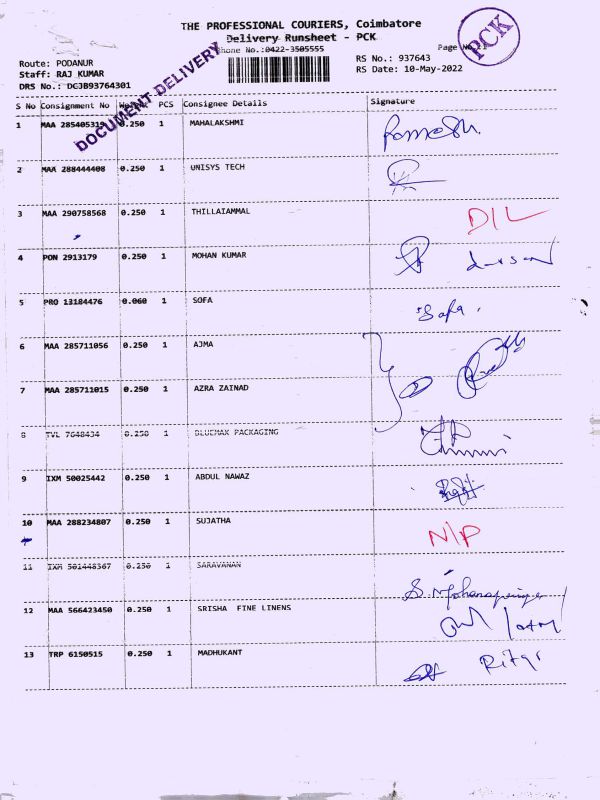 THE PROFESSIONAL COURIERS, Coimbatore
Delivery Runsheet - PCK
Phone No.:0422-3505555
Page No.:1
PCK
DOCUMENT DELIVERY
Route: PODANUR
Staff: RAJ KUMAR
DRS No.: DCJB93764301
RS No.: 937643
RS Date: 10-May-2022
S No Consignment No Weight PCS Consignee Details Signature
1 MAA 0.250 1 MAHALAKSHMI Ramesh.
2 MAA 288444408 0.250 1 UNISYS TECH
3 MAA 290758568 0.250 1 THILLAIAMMAL D/L
4 PON 2913179 0.250 1 MOHAN KUMAR
5 PRO 13184476 0.060 1 SOFA Sofa.
6 MAA 285711056 0.250 1 AJMA
7 MAA 285711015 0.250 1 AZRA ZAINAD
8 TVL 7648434 0.250 1 BLUEMAX PACKAGING
9 IXM 50025442 0.250 1 ABDUL NAWAZ
10 MAA 288234807 0.250 1 SUJATHA N/P
11 IXM 501448567 0.250 1 SARAVANAN
12 MAA 566423450 0.250 1 SRISHA FINE LINENS
13 TRP 6150515 0.250 1 MADHUKANT